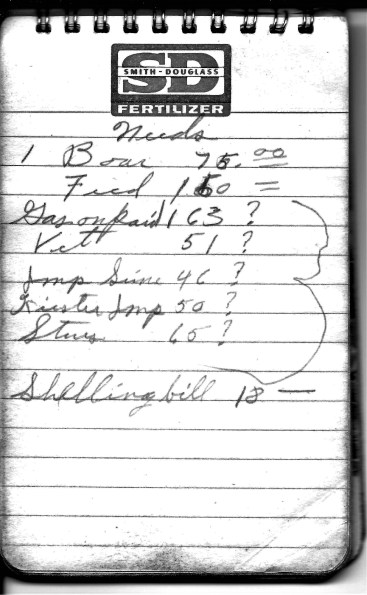 SD
SMITH - DOUGLASS
FERTILIZER
Needs
1 Boar 75.00
Feed 150 =
Gas onpaid 163 ?
Vet 51 ?
Imp 46 ?
Imp 50 ?
65 ?
Shelling bill 18 —